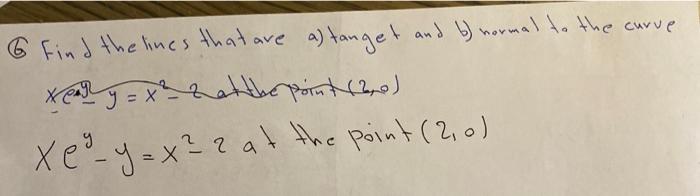 ⑥ Find the lines that are a) tanget and b) normal to the curve
xe^y - y = x² - 2 at the point (2,0)
Xe^y - y = x² - 2 at the point (2,0)